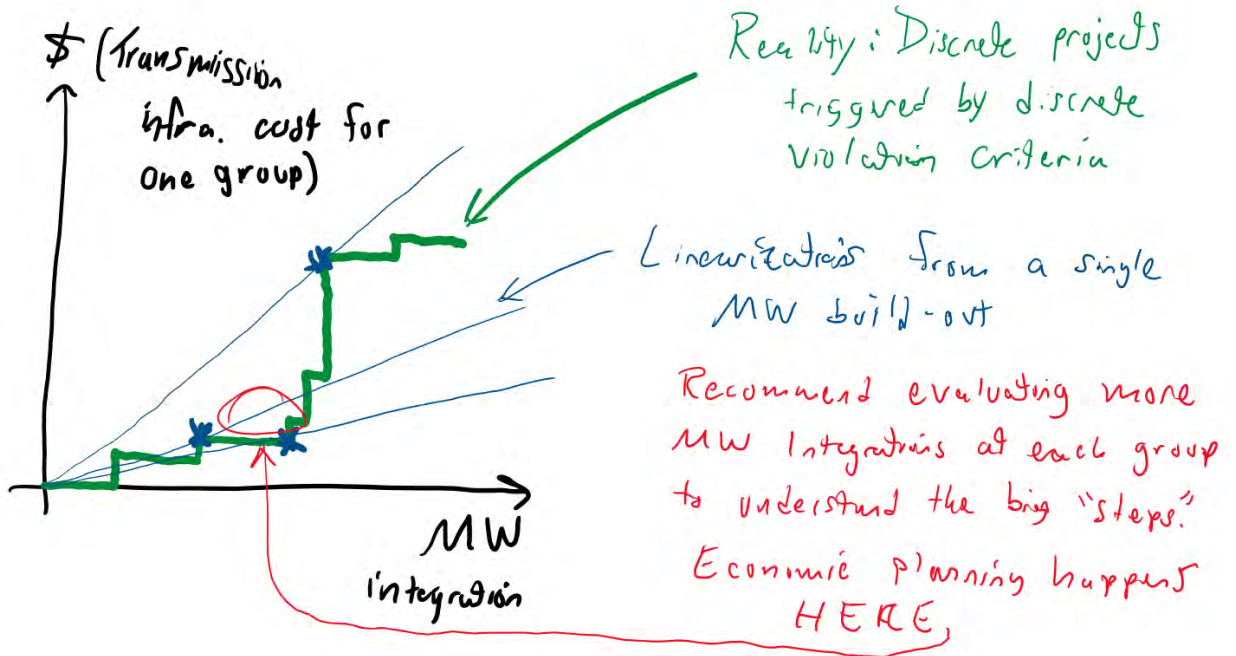 $ (Transmission
infra. cost for
one group)
MW
integration
Reality: Discrete projects
triggured by discrete
violation criteria
Linearizations from a single
MW build-out
Recommend evaluating more
MW Integrations at each group
to understand the big "steps."
Economic planning happens
HERE,